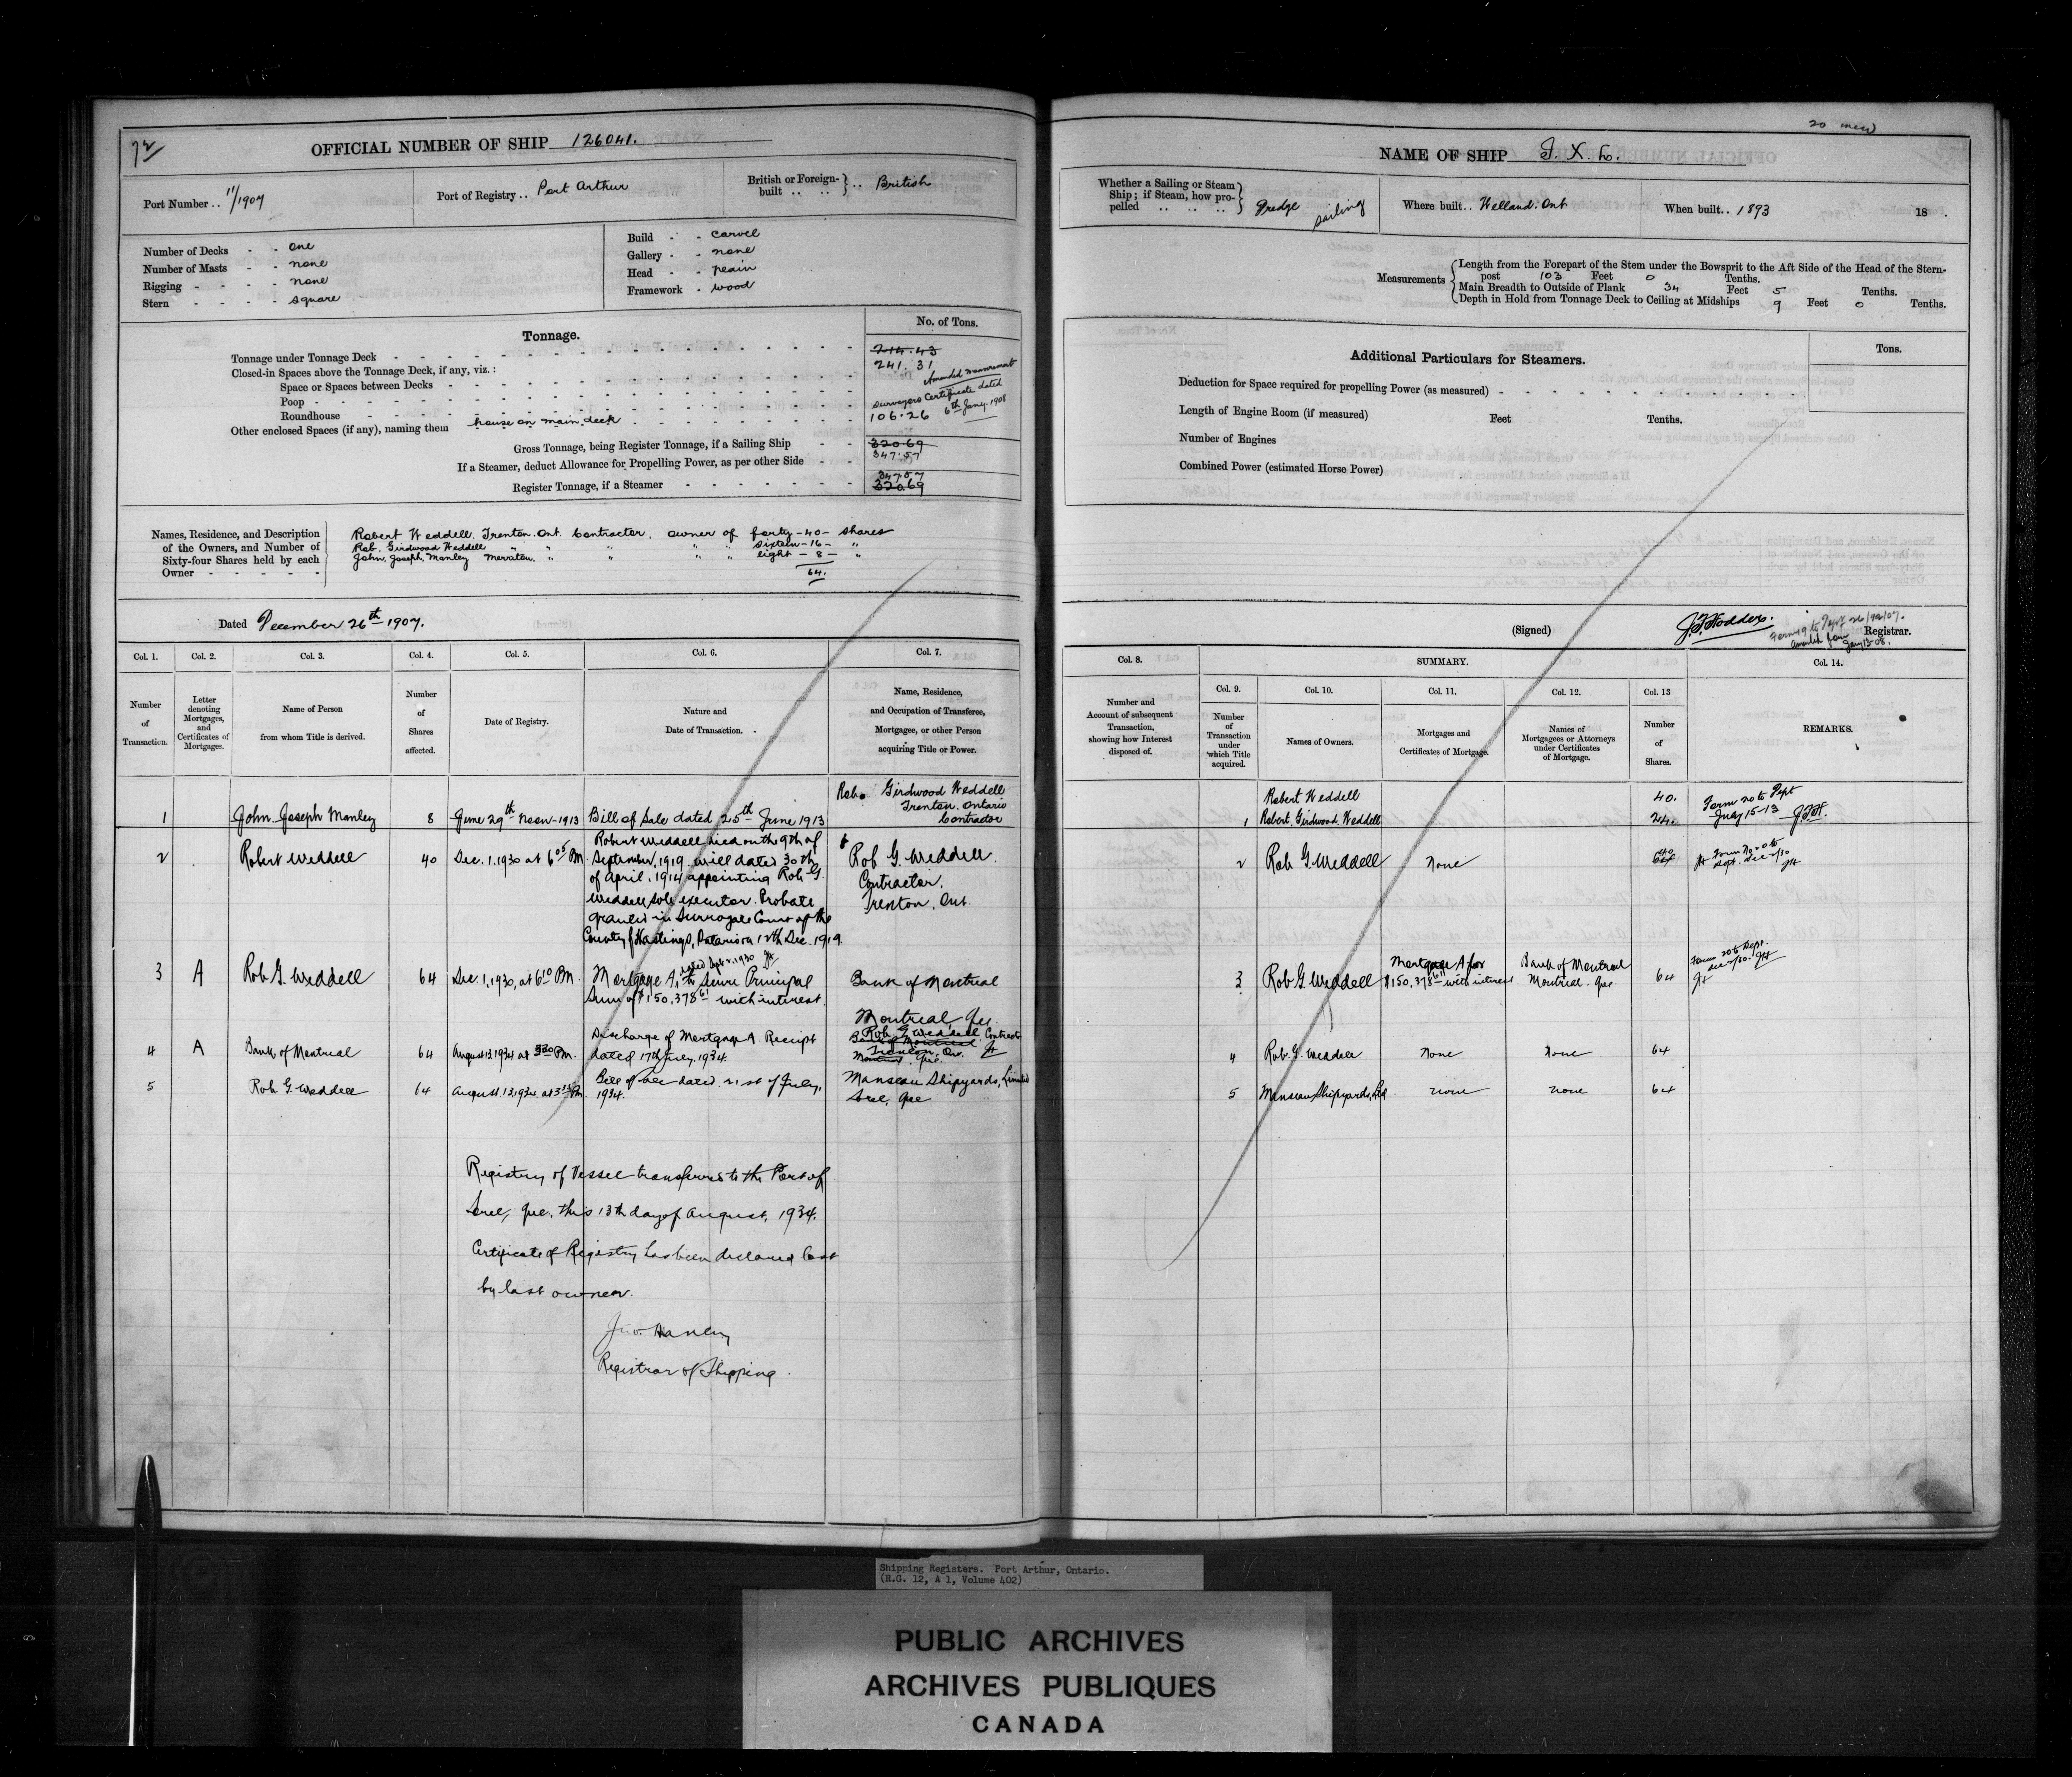 72
OFFICIAL NUMBER OF SHIP 126041.
Port Number .. 11/1907
Port of Registry .. Port Arthur
British or Foreign-built .. British
Number of Decks - - one
Number of Masts - - none
Rigging - - - - none
Stern - - - - square
Build - - carvel
Gallery - - none
Head - - plain
Framework - wood
Tonnage.
No. of Tons.
Tonnage under Tonnage Deck 214.43
241.31
Closed-in Spaces above the Tonnage Deck, if any, viz.:
Amended measurement
Space or Spaces between Decks
Surveyors Certificate dated
6th Jany. 1908
Poop
Roundhouse
Other enclosed Spaces (if any), naming them house on main deck 106.26
Gross Tonnage, being Register Tonnage, if a Sailing Ship 320.69
347.57
If a Steamer, deduct Allowance for Propelling Power, as per other Side
Register Tonnage, if a Steamer 347.57
320.69
Names, Residence, and Description
of the Owners, and Number of
Sixty-four Shares held by each
Owner
Robert Weddell, Trenton. Ont. Contractor, owner of forty -40- shares
Rob. Girdwood Weddell " " " " " sixteen -16- "
John. Joseph. Manley " " " " eight - 8 - "
64.
Dated December 26th 1907.
Col. 1. Col. 2. Col. 3. Col. 4. Col. 5. Col. 6. Col. 7.
Number of Transaction.
Letter denoting Mortgages, and Certificates of Mortgages.
Name of Person from whom Title is derived.
Number of Shares affected.
Date of Registry.
Nature and Date of Transaction.
Name, Residence, and Occupation of Transferee, Mortgagee, or other Person acquiring Title or Power.
1 John Joseph Manley 8 June 29th Noon-1913 Bill of Sale dated 25th June 1913
Rob. Girdwood Weddell
Trenton. Ontario
Contractor
2 Robert Weddell 40 Dec. 1. 1930 at 6 05 PM
Robert Weddell died on the 9th of
September, 1919. will dated 30th
of April, 1914 appointing Rob G.
Weddell sole executor. Probate
granted in Surrogate Court of the
County of Hastings, Ontario on 12th Dec. 1919.
Rob G. Weddell.
Contractor.
Trenton, Ont.
3 A Rob G. Weddell 64 Dec. 1, 1930, at 6 10 PM.
Mortgage A, dated Sept 2. 1930 to Secure Principal
Sum of $150,378 61 with interest.
Bank of Montreal
Montreal, Que.
4 A Bank of Montreal 64 August 13. 1934 at 3 30 PM.
Discharge of Mortgage A. Receipt
dated 17th July, 1934.
Rob. G Weddell Contractor
Bank of Montreal
Trenton, Ont.
Montreal. Que.
5 Rob G. Weddell 64 August. 13. 1934. at 3 35 PM
Bill of sale dated 21st of July,
1934.
Manseau Shipyards, Limited
Sorel, Que
Registry of Vessel transferred to the Port of
Sorel, Que. this 13th day of August, 1934.
Certificate of Registry has been declared lost
by last owner.
Jno. Hanley
Registrar of Shipping.
NAME OF SHIP F. X. L.
Whether a Sailing or Steam Ship; if Steam, how propelled
Dredge sailing
Where built .. Welland. Ont
When built .. 1893 18 .
Measurements
Length from the Forepart of the Stem under the Bowsprit to the Aft Side of the Head of the Stern-
post 103 Feet 0 Tenths.
Main Breadth to Outside of Plank 34 Feet 5 Tenths.
Depth in Hold from Tonnage Deck to Ceiling at Midships 9 Feet 0 Tenths.
Additional Particulars for Steamers.
Tons.
Deduction for Space required for propelling Power (as measured)
Length of Engine Room (if measured) Feet Tenths.
Number of Engines
Combined Power (estimated Horse Power)
(Signed) Registrar.
Form 19 to Dept
Jany 13-08.
Col. 8. SUMMARY. Col. 14.
Col. 9. Col. 10. Col. 11. Col. 12. Col. 13
Number and Account of subsequent Transaction, showing how Interest disposed of.
Number of Transaction under which Title acquired.
Names of Owners.
Mortgages and Certificates of Mortgage.
Names of Mortgagees or Attorneys under Certificates of Mortgage.
Number of Shares.
REMARKS.
Robert Weddell 40.
1 Robert. Girdwood. Weddell 24.
Form 20 to Dept
July 15-13
2 Rob G. Weddell None 40
64
3 Rob G. Weddell Mortgage A for
$150,378 61 with interest
Bank of Montreal
Montreal. Que. 64
Form 20 to Dept.
4 Rob. G. Weddell None None 64
5 Manseau Shipyards, Ltd none none 64
Shipping Registers. Port Arthur, Ontario.
(R.G. 12, A 1, Volume 402)
PUBLIC ARCHIVES
ARCHIVES PUBLIQUES
CANADA